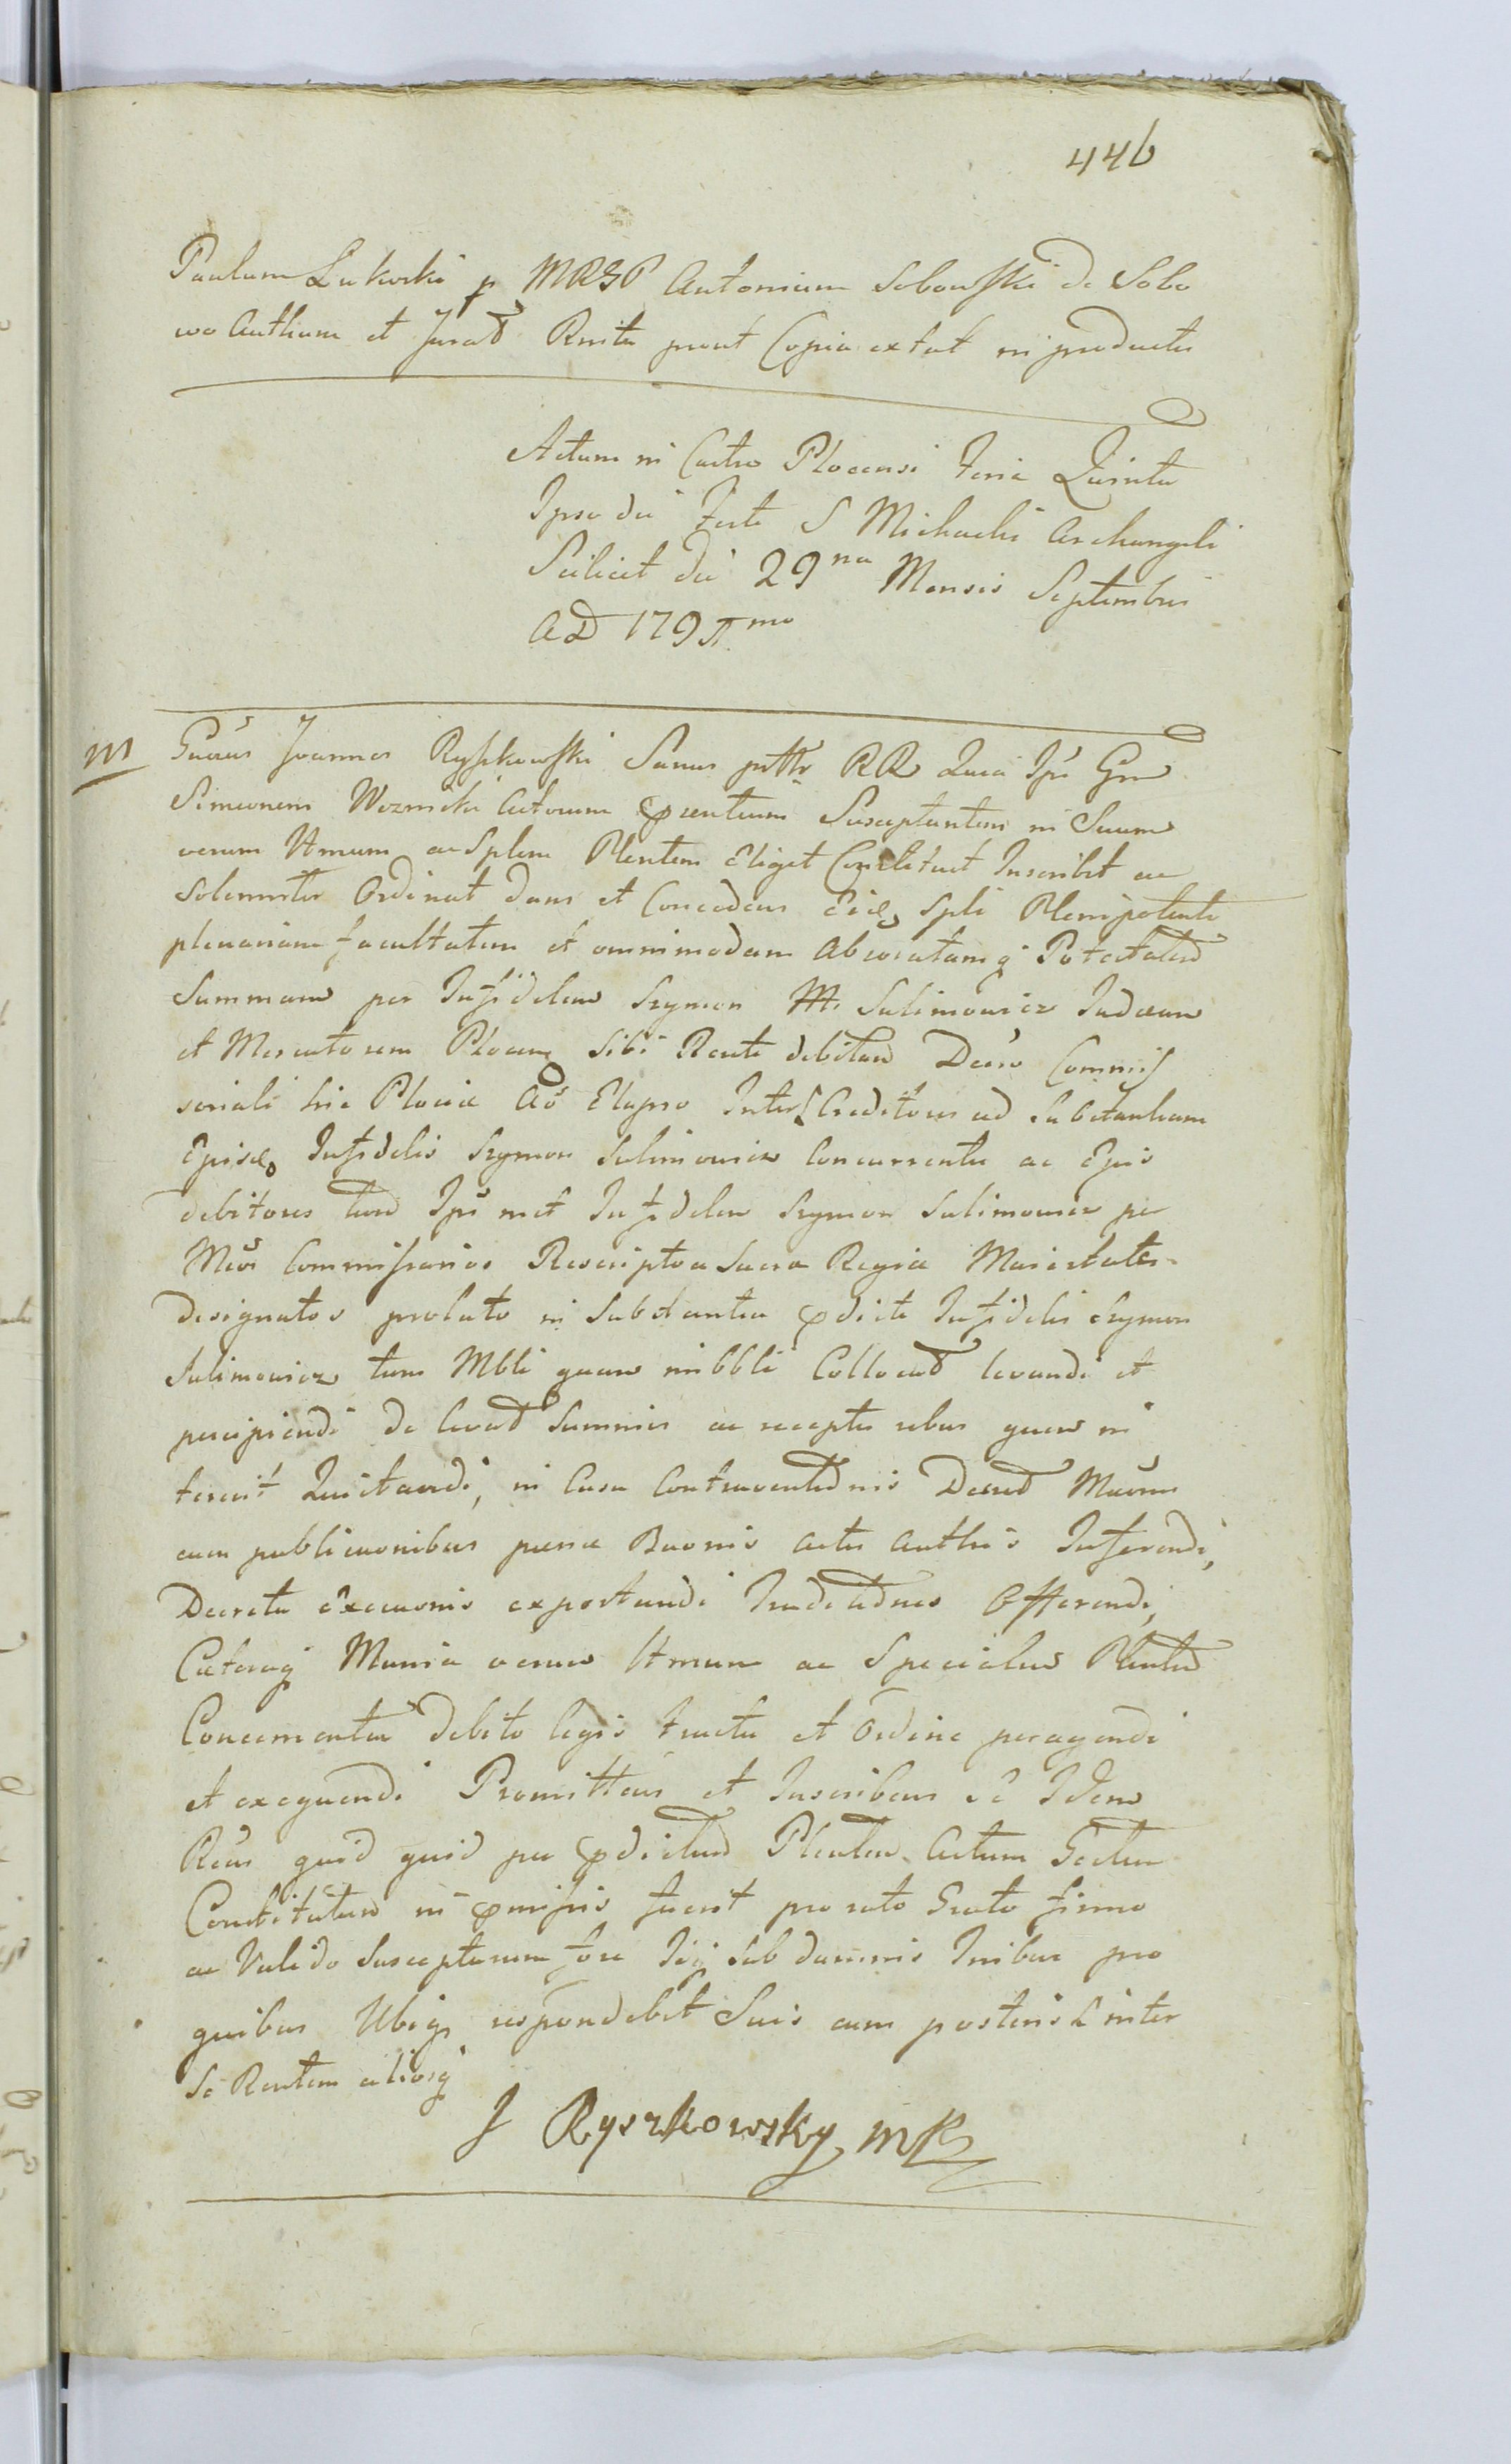 446
Paulum Lukoski p MRGP Antonium Sobowski de Sobo
wo Authum et Jurad Rnita prout Copia extat in productu
Actum in Castro Plocensi Feria Quinta
Ipso die Festi S Michaelis Archangeli
Scilicet die 29na Mensis Septembris
AD 179 mo
m Gnosus Joannes Ryszkowski Sanus RR Quia Ipse Gnm
Simeonem Woznicki Actorum pntium Susceptantem in Suum
verum ltmum ac Splem Plentem Eliget Constituet Inscribit ac
Solemniter Ordinat dans et Concedens Eidem Spli Plenipotenti
plenariam facultatem et omnimodam absolutamq Potestatem
Summam per Infidelem Szymon Sulimowicz Judaeum
et Mercatorem Plocen Sibi Rcnti debitam Decreto Commis
soriali hic Plociae Ao Elapso Inter Creditores ad Substantiam
Ejusdem Infidelis Szymon Sulimowicz Concurrentes ac Ejus
debitores tum Ipsummet Infidelem Szymon Sulimowicz per
Mcos Commissarios Rescripto a Sacra Regia Maiestate
designatos prolato in Substantia pdicti Infidelis Szymon
Sulimowicz tam Mbli quam imbbli Collocat levandi et
percipiendi de levat Summis ac receptis rebus quem in
tererit Quietandi, in Casu Contraventionis Decret
cum publicaonibus paena Baonis actis Authis Inferendi,
Decreta Execuonis exportandi Offerendi,
Caeteraq Munia verum ltmum ac Specialem Plentem
Concernentia debito legis tractu et Ordine peragendi
et exequendi Promittens et Inscribens se Idem
Rcns quid quid per pdictum Plentem Actum Gestum
Constitutum in pmissis fuerit pro rato Grato firmo
ac Valido Suscepturum fore Iisq Sub damnis Inibus pro
quibus Ubiq respondebit Suis cum posteris inter
Se Rcntem aliosq
J Ryszkowsky mp